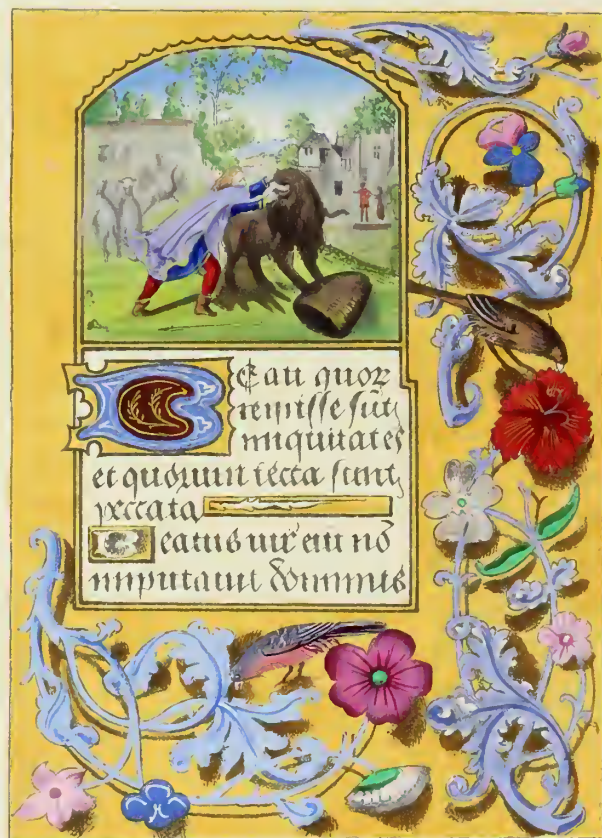 Beati quoꝝ
remisse sūt
iniquitates
et quorum tecta sunt
peccata
Beatus vir cui nō
imputavit dominus